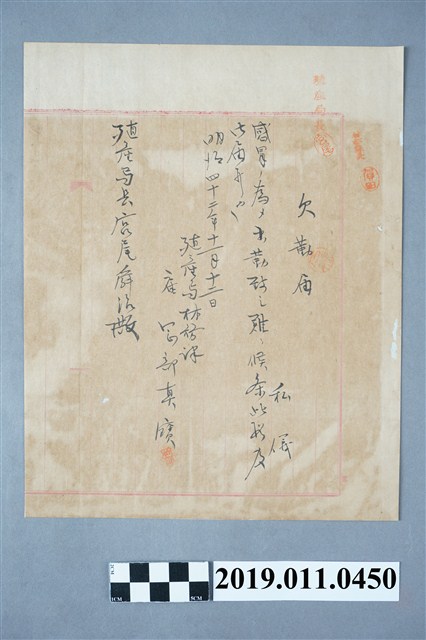 欠勤届
私儀
感冒ノ為メ出勤致シ難ク候条此段及
御届候也
明治四十二年十一月十二日
殖産局林務課
雇 岡部真濱
殖産局長宮尾舜治殿
1CM
5CM
2019.011.0450